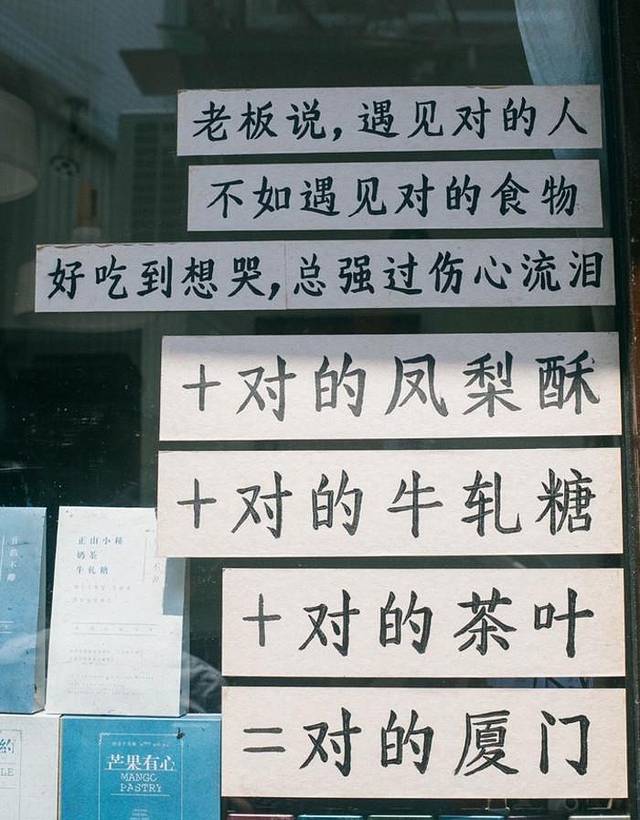 老板说，遇见对的人
不如遇见对的食物
好吃到想哭，总强过伤心流泪
+对的凤梨酥
+对的牛轧糖
+对的茶叶
=对的厦门
正山小种
奶茶
牛轧糖
芒果有心
MANGO
PASTRY